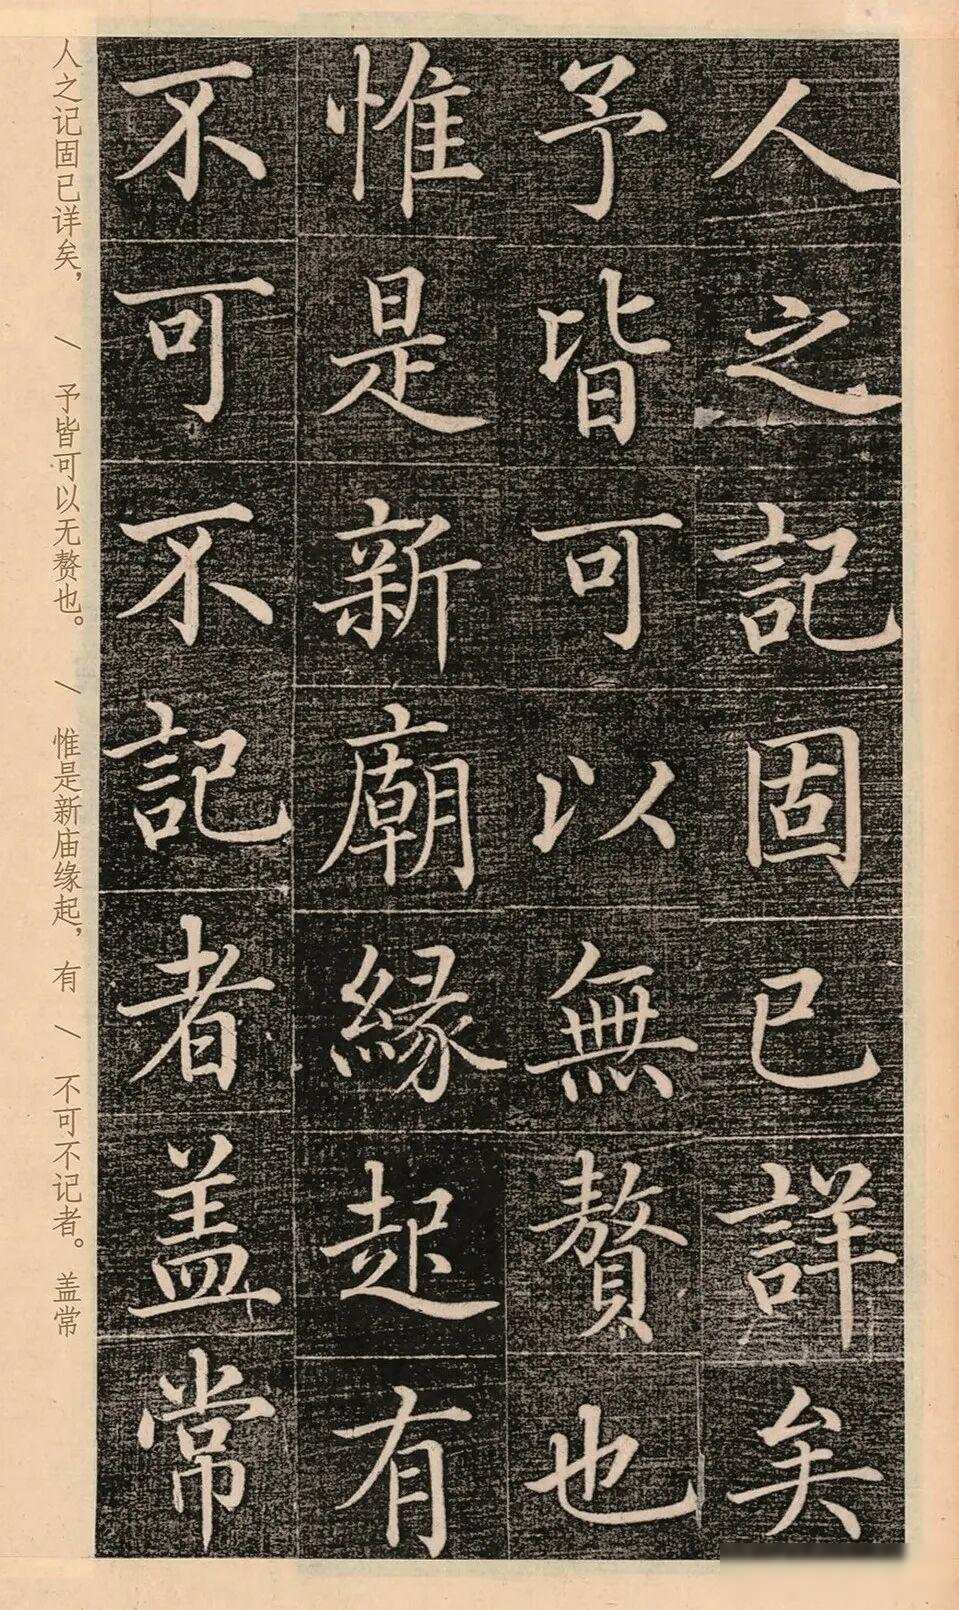 人之記固已詳矣
予皆可以無贅也
惟是新廟緣起有
不可不記者盖常
人之记固已详矣，\予皆可以无赘也。/惟是新庙缘起，有\不可不记者。盖常